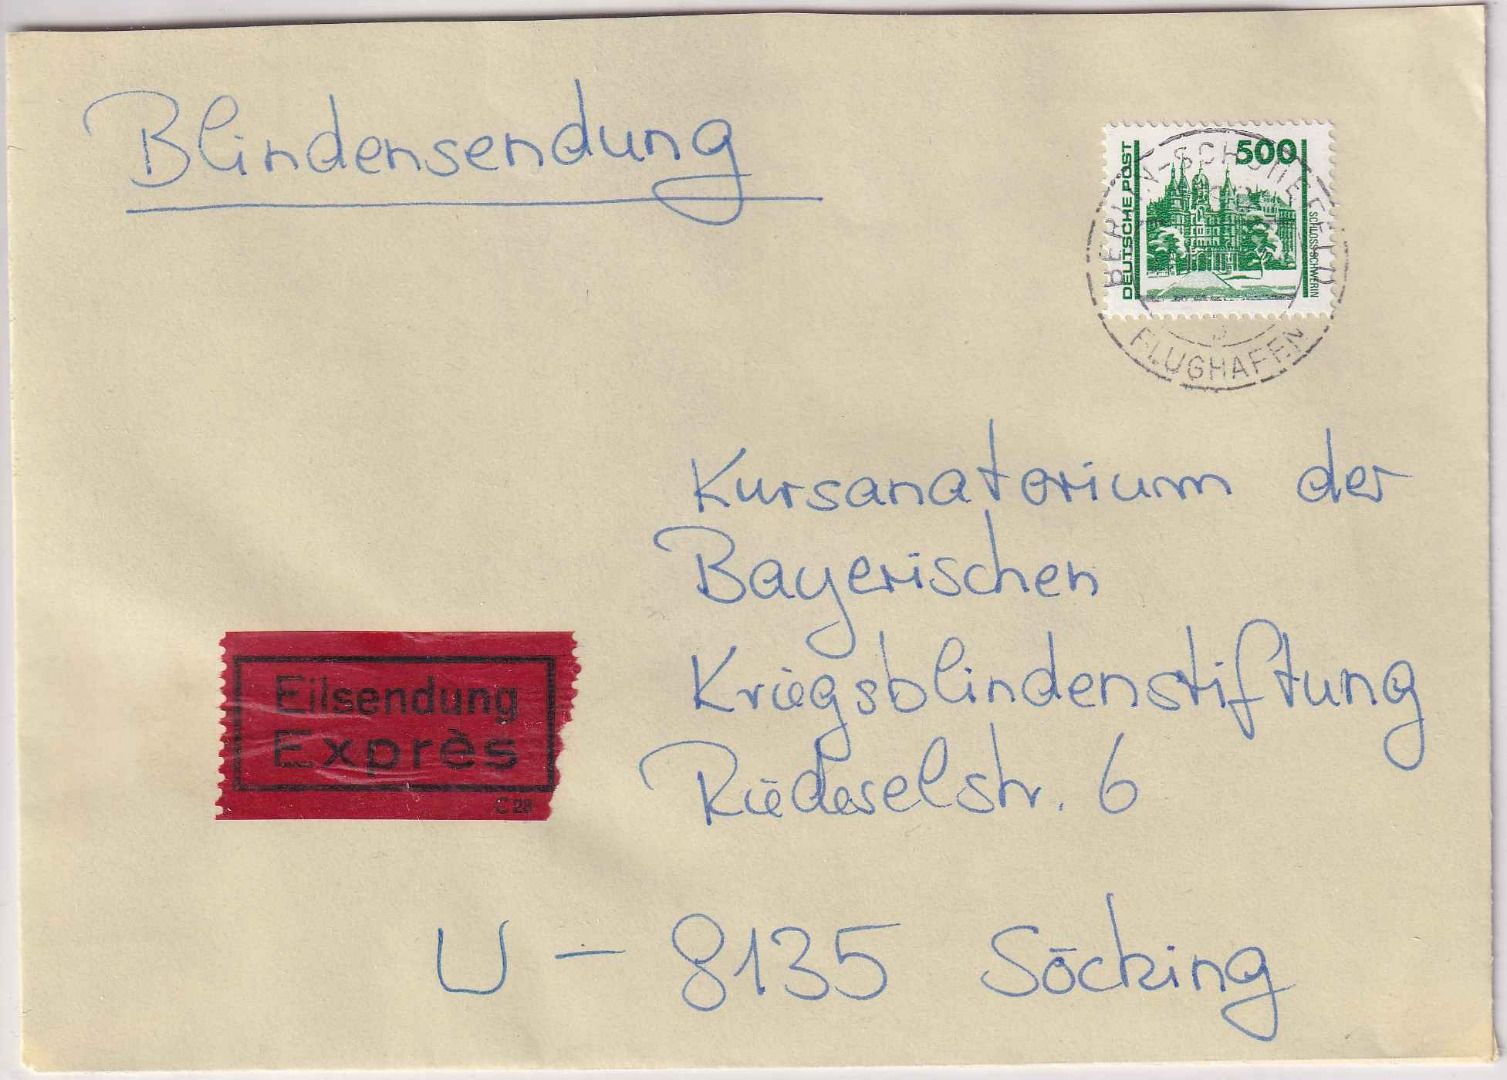 Blindensendung
500
DEUTSCHE POST
SCHLOSS SCHWERIN
BERLIN-SCHÖNEFELD
FLUGHAFEN
Kursanatorium der
Bayerischen
Kriegsblindenstiftung
Riedeselstr. 6
Eilsendung
Exprès
C 28
U - 8135 Söcking